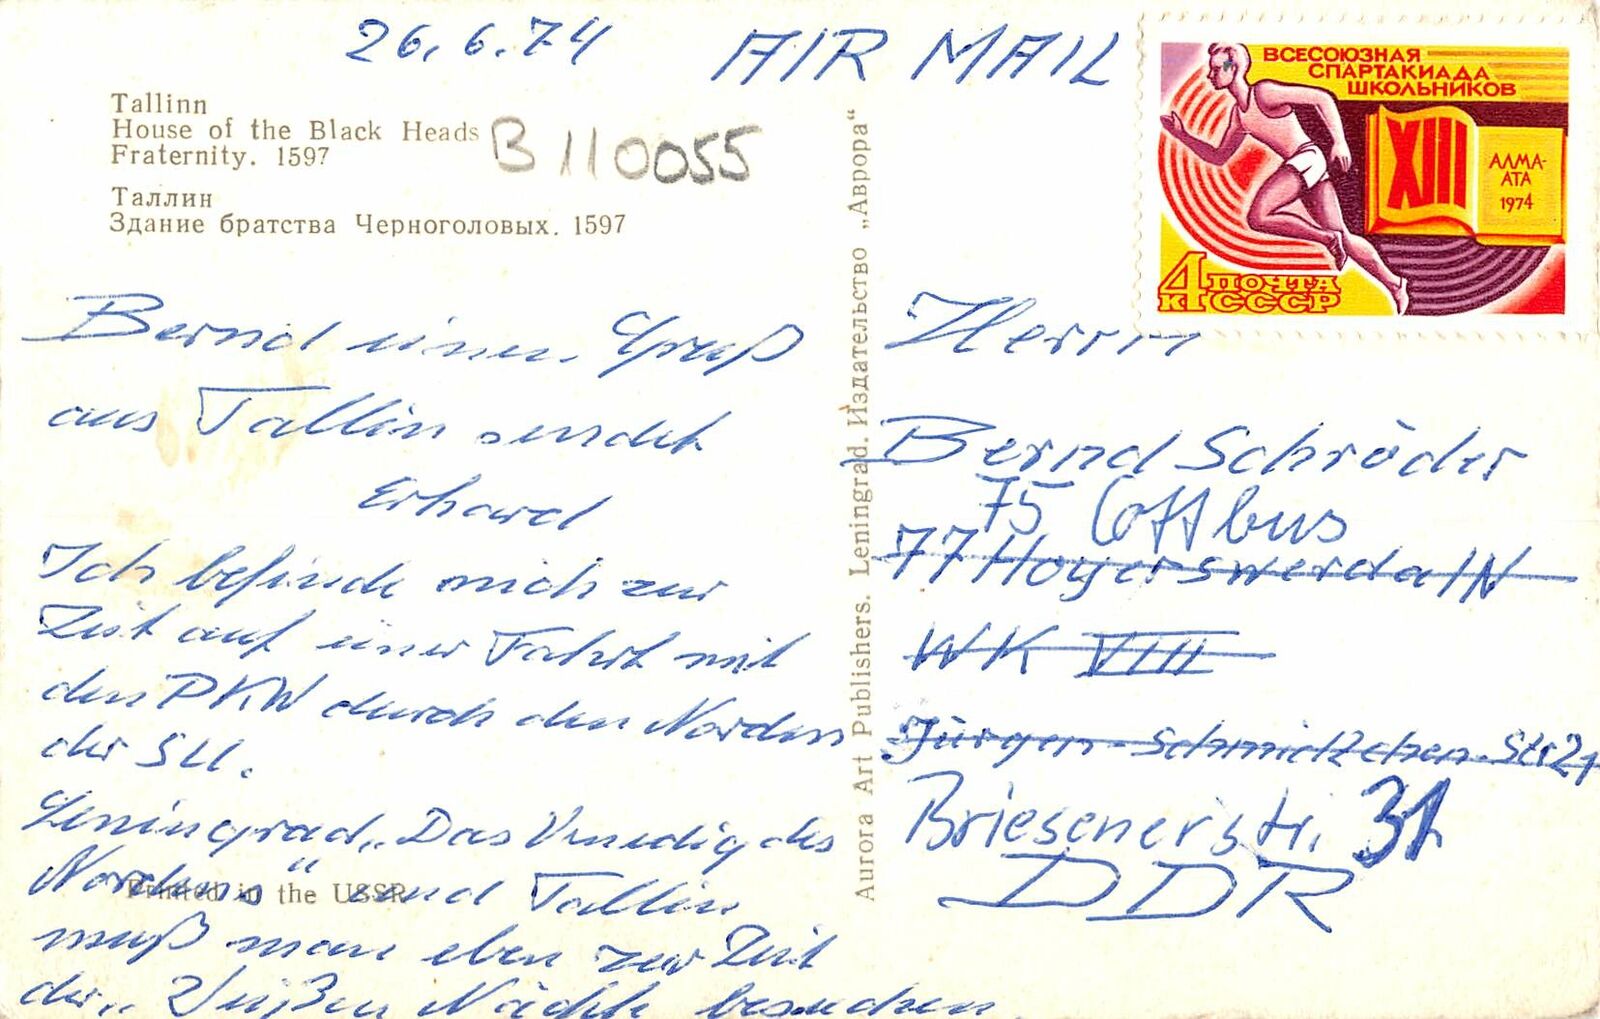 26.6.74
AIR MAIL
ВСЕСОЮЗНАЯ
СПАРТАКИАДА
ШКОЛЬНИКОВ
XIII
АЛМА-
АТА
1974
4
К
ПОЧТА
СССР
Tallinn
House of the Black Heads
Fraternity. 1597
B110055
Таллин
Здание братства Черноголовых. 1597
Bernd einen Gruß
aus Tallin sendet
Erhard
Ich befinde mich zur
Zeit auf einer Fahrt mit
den PKW durch den Norden
der SU.
Leningrad „Das Venedig des
Nordens" und Tallin
muß man eben zur Zeit
der „Weißen Nächte besuchen.
Printed in the USSR
Aurora Art Publishers. Leningrad. Издательство „Аврора“
Herrn
Bernd Schröder
75 Cottbus
77 Hoyerswerda/N
WK VIII
Jürgen-Schmietzchen-Str 21
Briesenerstr. 31
DDR